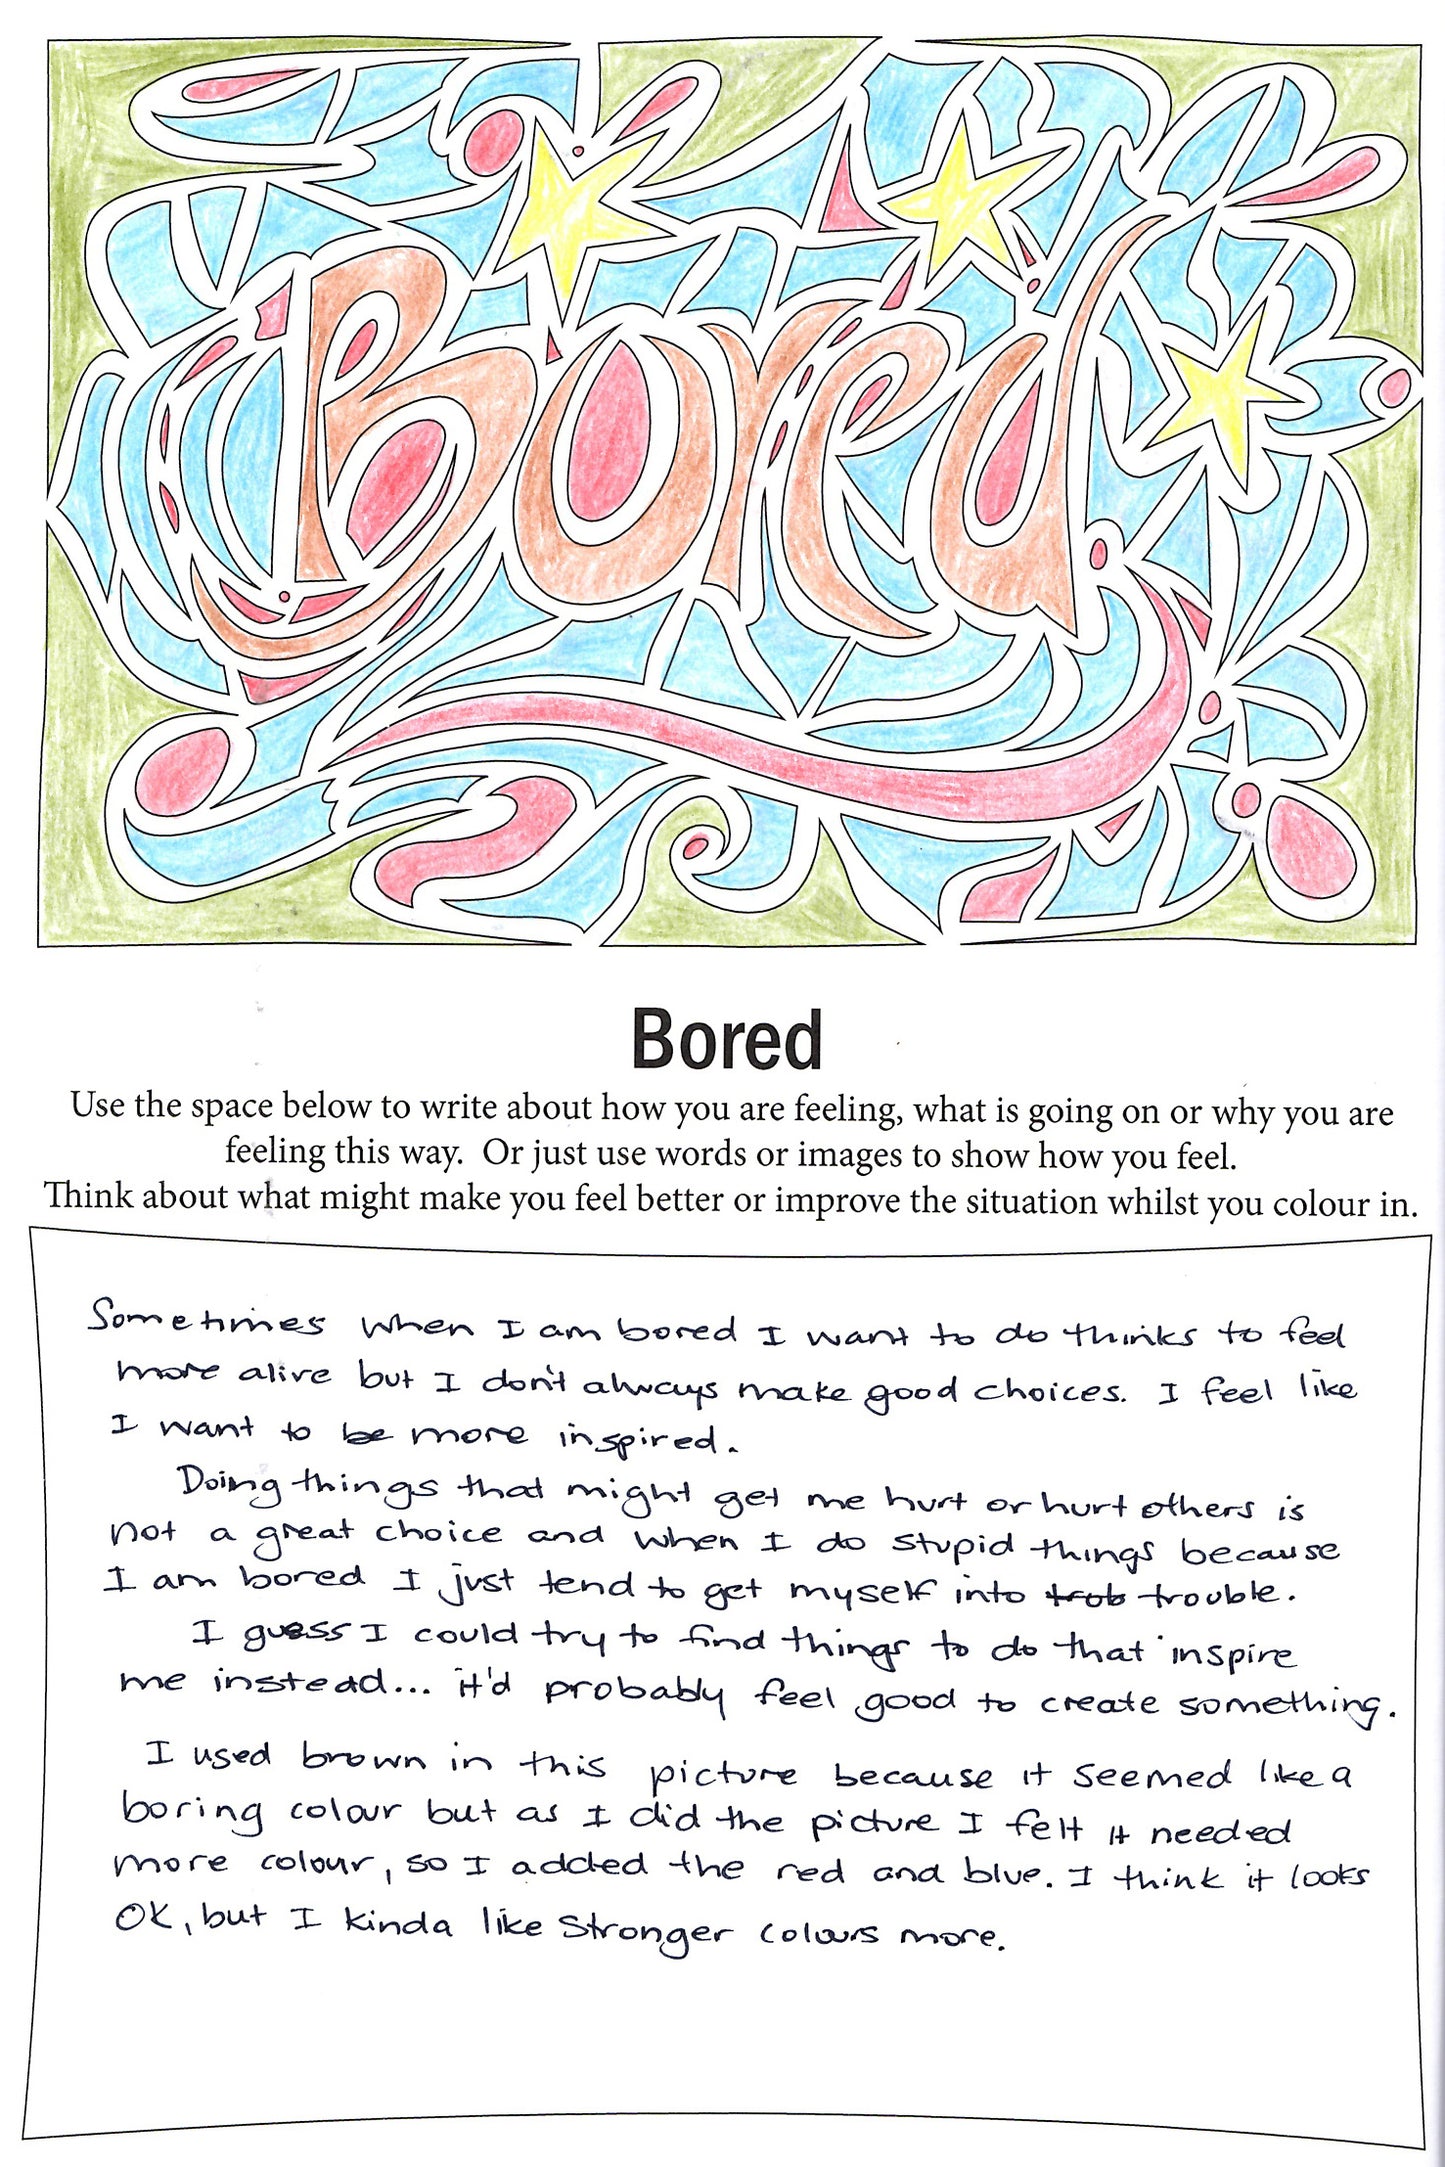 Bored
Bored
Use the space below to write about how you are feeling, what is going on or why you are
feeling this way.  Or just use words or images to show how you feel.
Think about what might make you feel better or improve the situation whilst you colour in.
Sometimes when I am bored I want to do thinks to feel
more alive but I don't always make good choices. I feel like
I want to be more inspired.
Doing things that might get me hurt or hurt others is
not a great choice and when I do stupid things because
I am bored I just tend to get myself into trob trouble.
I guess I could try to find things to do that inspire
me instead... it'd probably feel good to create something.
I used brown in this picture because it seemed like a
boring colour but as I did the picture I felt it needed
more colour, so I added the red and blue. I think it looks
OK, but I kinda like stronger colours more.